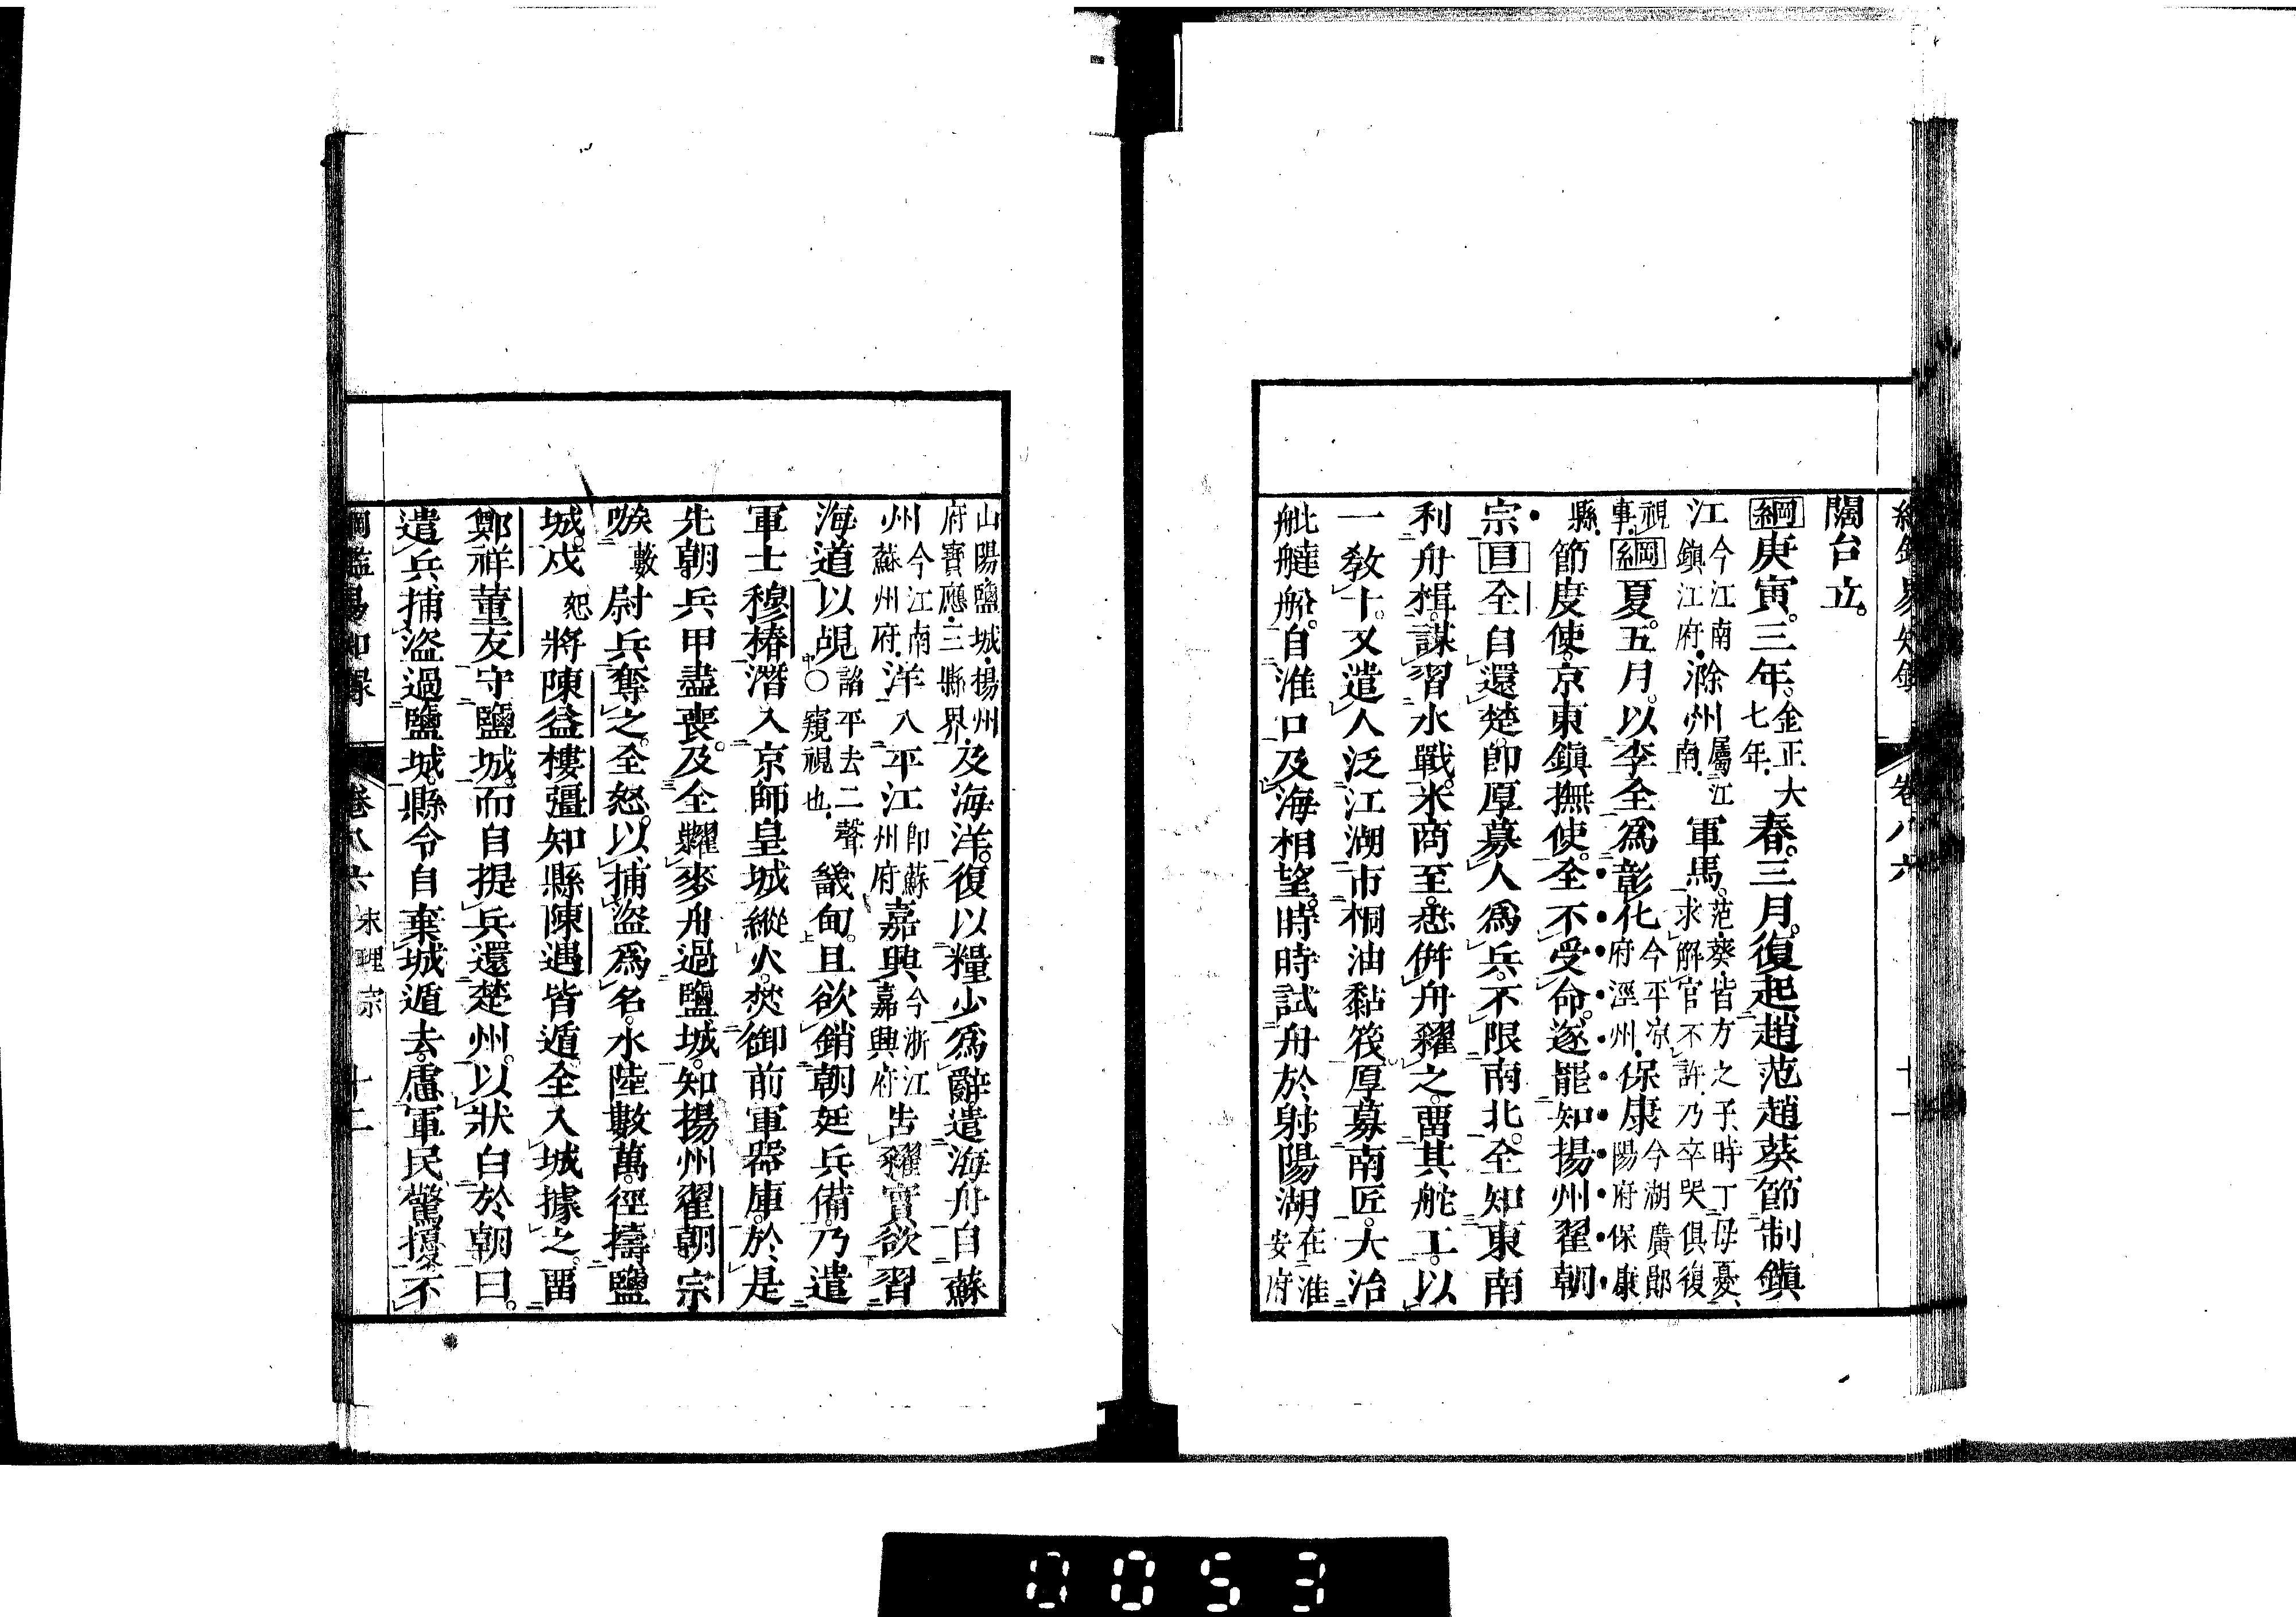 綱鑑易知録 卷八六 十一
闊台立。
綱庚寅。三年。金正大七年。春。三月。復起趙范趙葵節制鎭
江今江南鎭江府。滁州屬江南。軍馬。范葵皆方之子、時丁母憂、求解官不許、乃卒哭俱復
視事。綱夏。五月。以李全爲彰化今平凉府涇州。保康今湖廣鄖陽府保康
縣。節度使。京東鎭撫使。全不受命。遂罷知揚州翟朝
宗。目全自還楚。卽厚募人爲兵。不限南北。全知東南
利舟楫。謀習水戰。米商至。悉倂舟糴之。畱其舵工。以
一敎十。又遣人泛江湖。市桐油黏筏。厚募南匠。大治
舭䑓船。自淮口及海相望。時時試舟於射陽湖在淮安府
山陽鹽城揚州府寶應三縣界。及海洋。復以糧少爲辭。遣海舟自蘇
州今江南蘇州府。洋入平江卽蘇州府嘉興今浙江嘉興府告糴。實欲習
海道。以覘諂平去二聲○窺視也。畿甸。且欲銷朝廷兵備。乃遣
軍士穆椿潛入京師皇城縱火。焚御前軍器庫。於是
先朝兵甲盡喪。及全糴麥舟過鹽城。知揚州翟朝宗
嗾數尉兵奪之。全怒。以捕盜爲名。水陸數萬。徑擣鹽
城。戍恕將陳益樓彊知縣陳遇皆遁。全入城據之。畱
鄭祥董友守鹽城。而自提兵還楚州。以狀白於朝曰。
遣兵捕盜過鹽城。縣令自棄城遁去。慮軍民驚擾。不
綱鑑易知録 卷八六 宋理宗 十二
0053